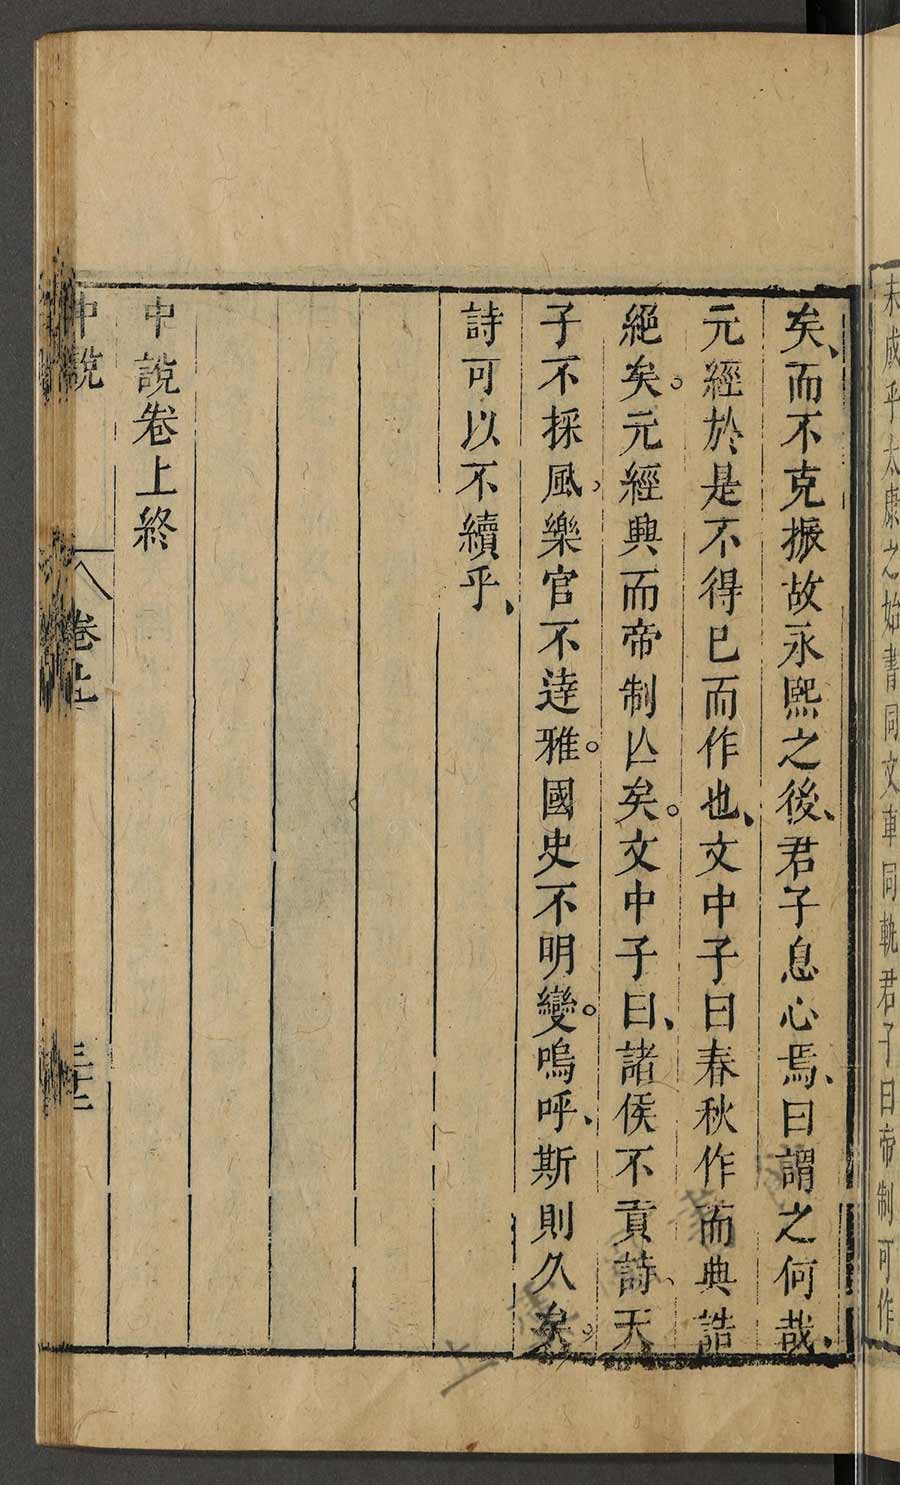 未成乎太康之始書同文車同軌君子曰帝制可作
矣、而不克振故永熙之後、君子息心焉、曰謂之何哉、
元經於是不得已而作也、文中子曰春秋作而典誥
絕矣。元經興而帝制亾矣。文中子曰、諸侯不貢詩、天
子不採風、樂官不逹雅。國史不明變。嗚呼、斯則久矣。
詩可以不續乎、
中說卷上終
中說
卷上